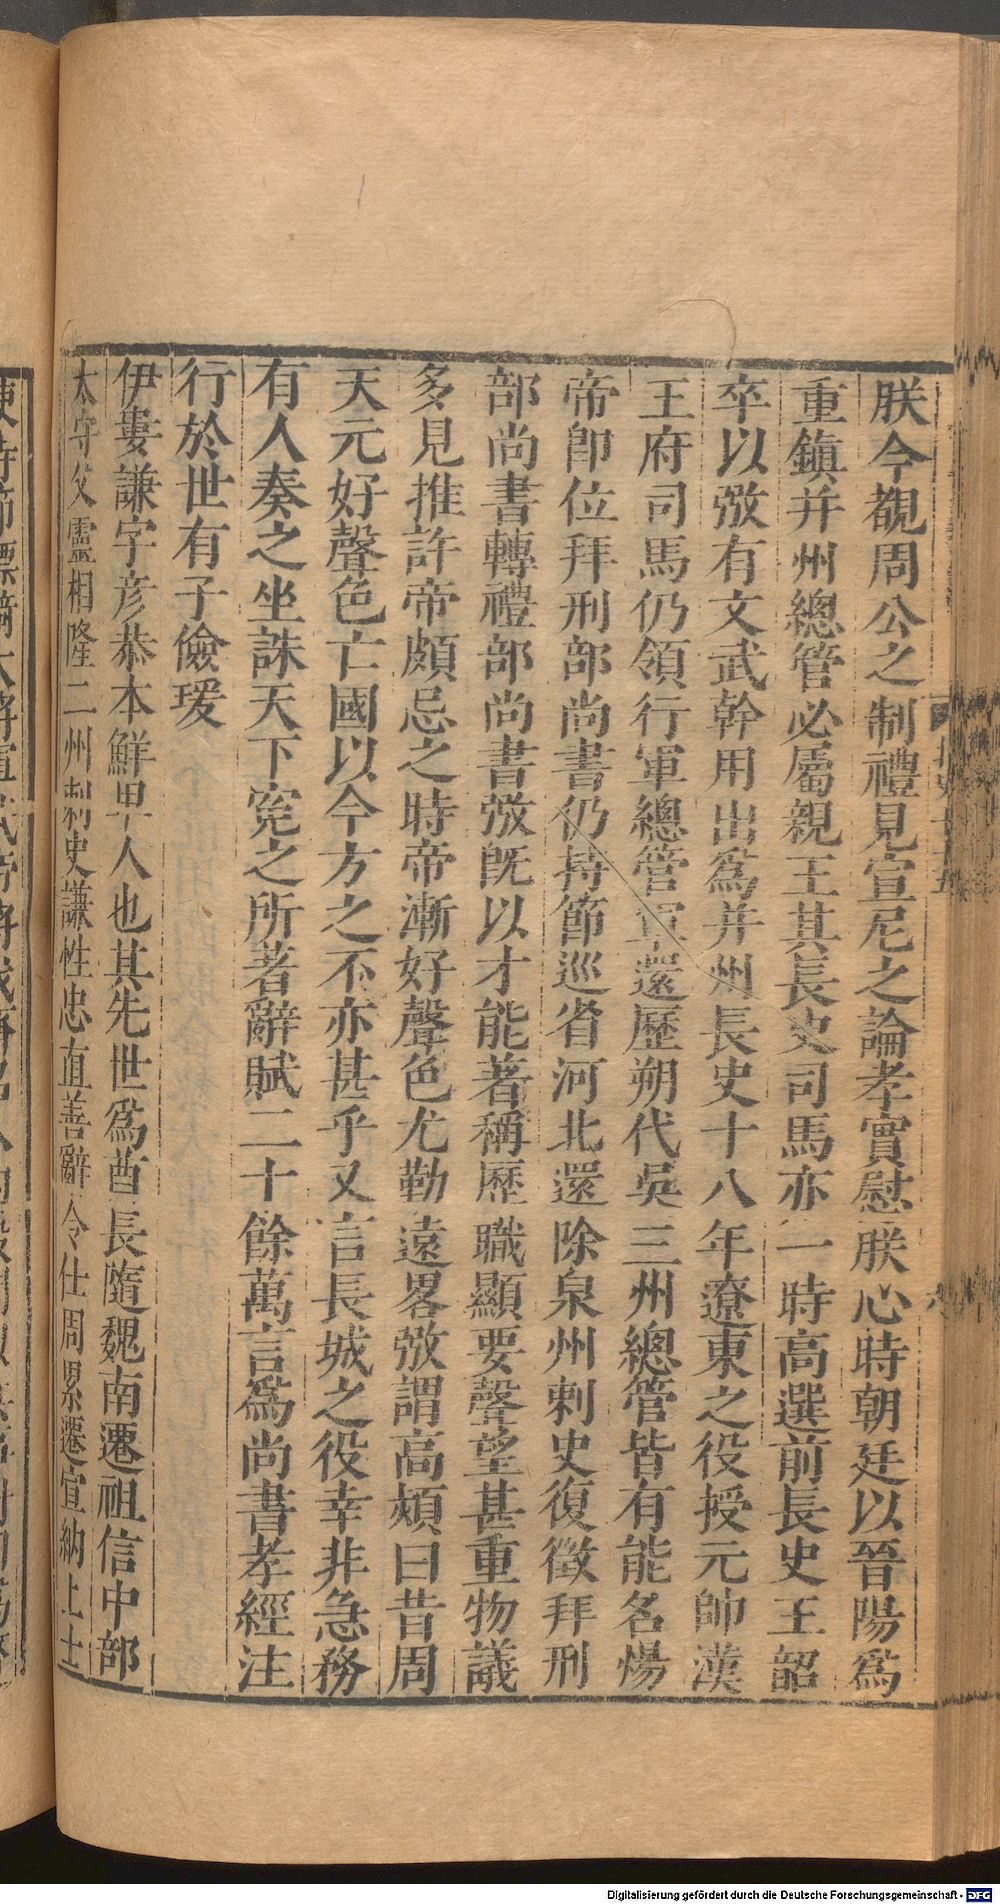 朕今覩周公之制禮見宣尼之論孝實慰朕心時朝廷以晉陽爲
重鎮并州總管必屬親王其長史司馬亦一時高選前長史王韶
卒以㢸有文武幹用出爲并州長史十八年遼東之役授元帥漢
王府司馬仍領行軍總管軍還歷朔代吳三州總管皆有能名煬
帝卽位拜刑部尚書仍持節巡省河北還除泉州刺史復徵拜刑
部尚書轉禮部尚書㢸旣以才能著稱歷職顯要聲望甚重物議
多見推許帝頗忌之時帝漸好聲色尤勤遠畧㢸謂高熲曰昔周
天元好聲色亡國以今方之不亦甚乎又言長城之役幸非急務
有人奏之坐誅天下寃之所著辭賦二十餘萬言爲尚書孝經注
行於世有子儉瑗
伊婁謙字彦恭本鮮卑人也其先世爲酋長隨魏南遷祖信中部
太守父靈相隆二州刺史謙性忠直善辭令仕周累遷宣納上士
Digitalisierung gefördert durch die Deutsche Forschungsgemeinschaft - DFG